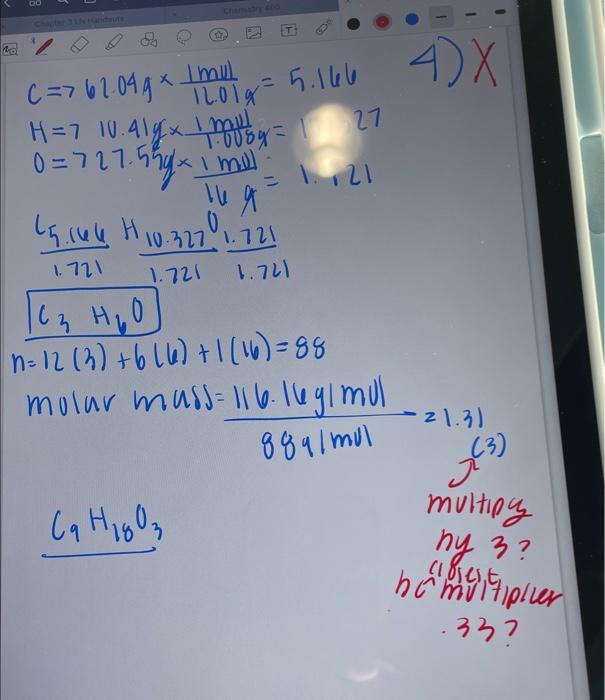 Chapter 3 LN Handouts
Chemistry 400
4) X
C => 62.04g × 1 mol / 12.01g = 5.166
H => 10.41g × 1 mol / 1.008g = 1 327
O => 27.55g × 1 mol / 16 g = 1.721
C 5.166 / 1.721 H 10.327 / 1.721 O 1.721 / 1.721
C3 H6O
n = 12(3) + 6(6) + 1(16) = 88
molar mass = 116.16g/mol / 88g/mol = 1.31
(3)
multiply
by 3?
bc closest
multiplier
.33?
C9H18O3